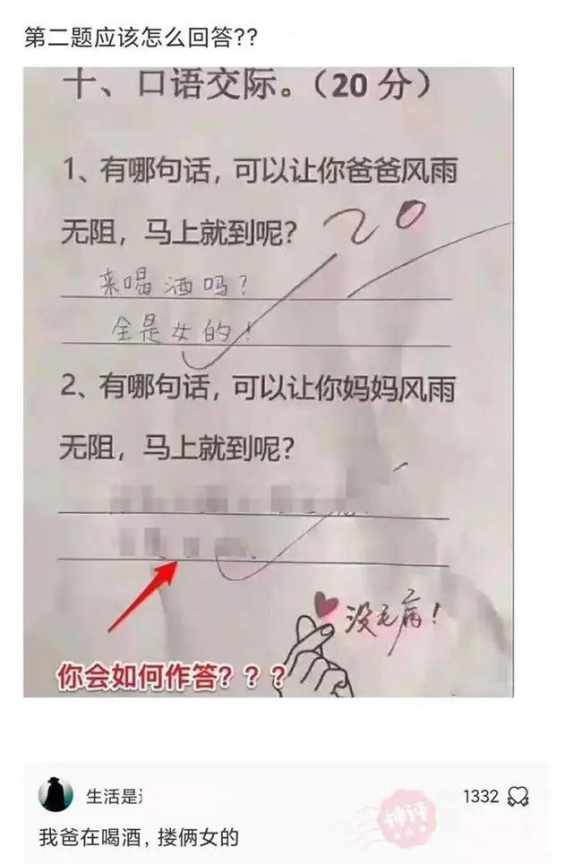 第二题应该怎么回答??
十、口语交际。（20 分）
1、有哪句话，可以让你爸爸风雨
无阻，马上就到呢？
20
来喝酒吗？
全是女的！
2、有哪句话，可以让你妈妈风雨
无阻，马上就到呢？
没毛病！
你会如何作答？？？
生活是
1332
神评
我爸在喝酒，搂俩女的